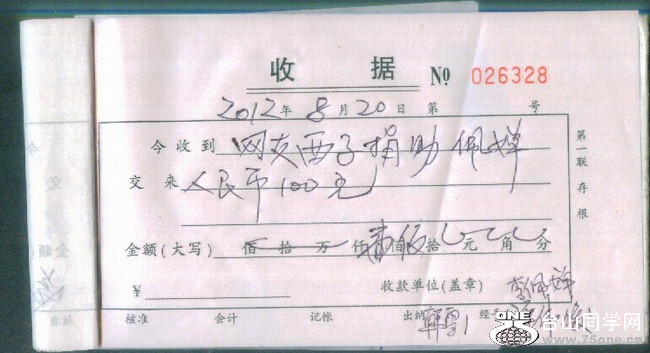 收 据 No 026328
2012年 8月 20日 第 号
今收到 网友西子捐助佩婵
交来 人民币100元
金额(大写) 佰 拾 万 仟 壹佰 拾 元 角 分
¥ 收款单位(盖章)
核准 会计 记帐 出纳 经
第一联存根
ONE 台山同学网
www.75one.cn